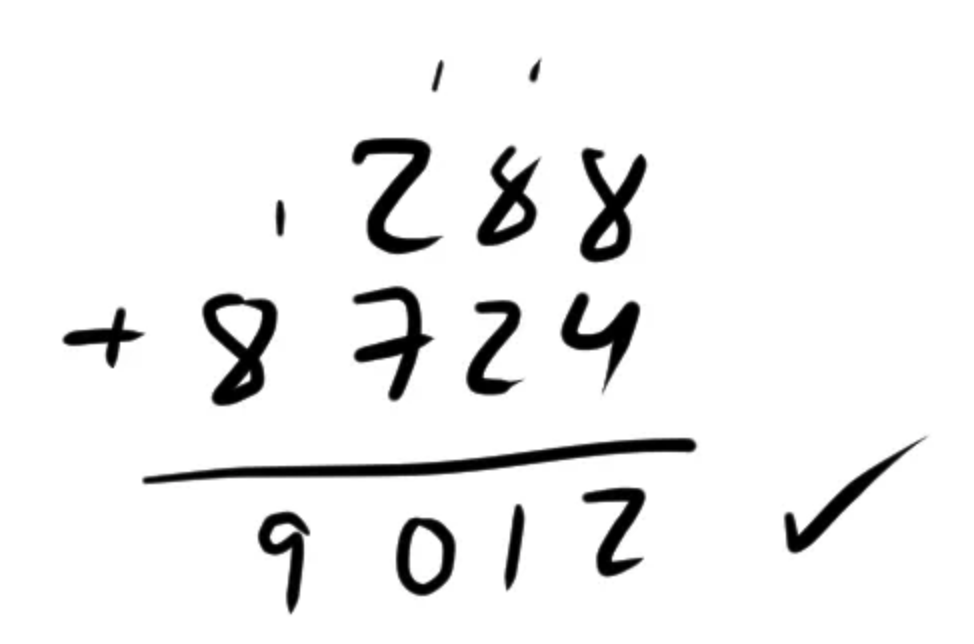 1 1
1 288
+ 8724
9012 ✓